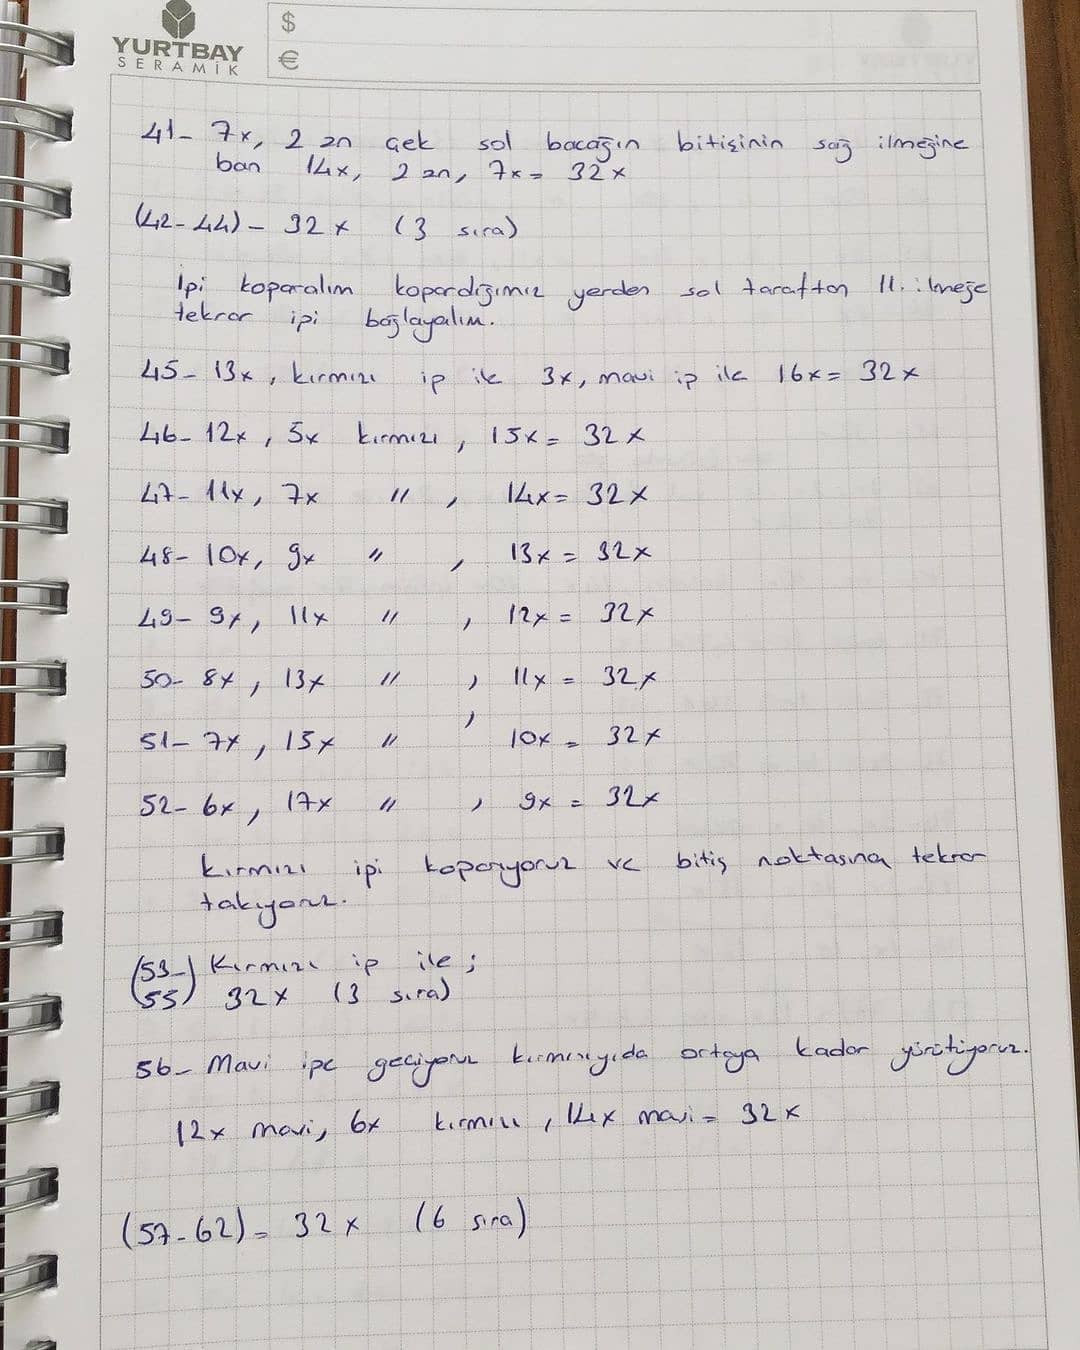 YURTBAY
SERAMİK
$
€
41- 7x, 2 zn çek sol bacağın bitişinin sağ ilmeğine
ban 14x, 2 zn, 7x = 32x
(42-44) - 32x (3 sıra)
İpi koparalım kopardığımız yerden sol taraftan 11. ilmeğe
tekrar ipi bağlayalım.
45- 13x, kırmızı ip ile 3x, mavi ip ile 16x = 32x
46- 12x, 5x kırmızı, 15x = 32x
47- 11x, 7x " , 14x = 32x
48- 10x, 9x " , 13x = 32x
49- 9x, 11x " , 12x = 32x
50- 8x, 13x " , 11x = 32x
51- 7x, 15x " , 10x = 32x
52- 6x, 17x " , 9x = 32x
kırmızı ipi koparıyoruz ve bitiş noktasına tekrar
takıyoruz.
(53-) Kırmızı ip ile;
55) 32x (3 sıra)
56- Mavi ipe geçiyoruz kırmızıyıda ortaya kadar yürütüyoruz.
12x mavi, 6x kırmızı, 14x mavi = 32x
(57-62) = 32x (6 sıra)